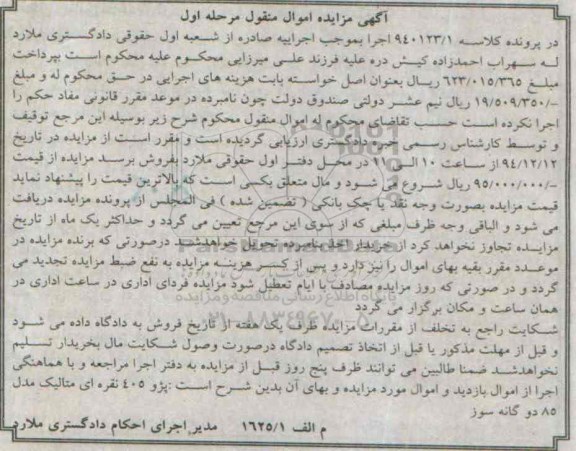 آگهی مزایده اموال منقول مرحله اول
در پرونده کلاسه ۹۴۰۱۲۳/۱ اجرا بموجب اجراییه صادره از شعبه اول حقوقی دادگستری ملارد
له سهراب احمدزاده کیش دره علیه فرزند علی میرزایی محکوم علیه محکوم است بپرداخت
مبلغ ۶۲۳/۰۱۵/۳۶۵ ریال بعنوان اصل خواسته بابت هزینه های اجرایی در حق محکوم له و مبلغ
۱۹/۵۰۹/۳۵۰/- ریال نیم عشر دولتی صندوق دولت چون نامبرده در موعد مقرر قانونی مفاد حکم را
اجرا نکرده است حسب تقاضای محکوم له اموال منقول محکوم شرح زیر بوسیله این مرجع توقیف
و توسط کارشناس رسمی خبره دادگستری ارزیابی گردیده است و مقرر است از مزایده در تاریخ
۹۴/۱۲/۱۲ از ساعت ۱۰ الی ۱۱ در محل دفتر اول حقوقی ملارد بفروش برسد مزایده از قیمت
۹۵/۰۰۰/۰۰۰/- ریال شروع می شود و مال متعلق بکسی است که بالاترین قیمت را پیشنهاد نماید
قیمت مزایده بصورت وجه نقد یا چک بانکی ( تضمین شده ) فی المجلس از پرونده مزایده دریافت
می شود و الباقی وجه ظرف مبلغی که از سوی این مرجع تعیین می گردد و حداکثر یک ماه از تاریخ
مزایده تجاوز نخواهد کرد از خریدار اخذ بنامبرده تحویل خواهدشد درصورتی که برنده مزایده در
موعدد مقرر بقیه بهای اموال را نپردازد و پس از کسر هزینه مزایده به نفع ضبط مزایده تجدید می
گردد و در صورتی که روز مزایده مصادف با ایام تعطیل شود مزایده فردای اداری در ساعت اداری در
همان ساعت و مکان برگزار می گردد
پایگاه اطلاع رسانی مناقصه و مزایده
۰۲۱-۸۸۳۴۹۶۷۰
شکایت راجع به تخلف از مقررات مزایده ظرف یک هفته از تاریخ فروش به دادگاه داده می شود
و قبل از مهلت مذکور یا قبل از اتخاذ تصمیم دادگاه درصورت وصول شکایت مال بخریدار تسلیم
نخواهدشد ضمنا طالبین می توانند ظرف پنج روز قبل از مزایده به دفتر اجرا مراجعه و با هماهنگی
اجرا از اموال بازدید و اموال مورد مزایده و بهای آن بدین شرح است :پژو ۴۰۵ نقره ای متالیک مدل
۸۵ دو گانه سوز
م الف ۱۶۲۵/۱ مدیر اجرای احکام دادگستری ملارد